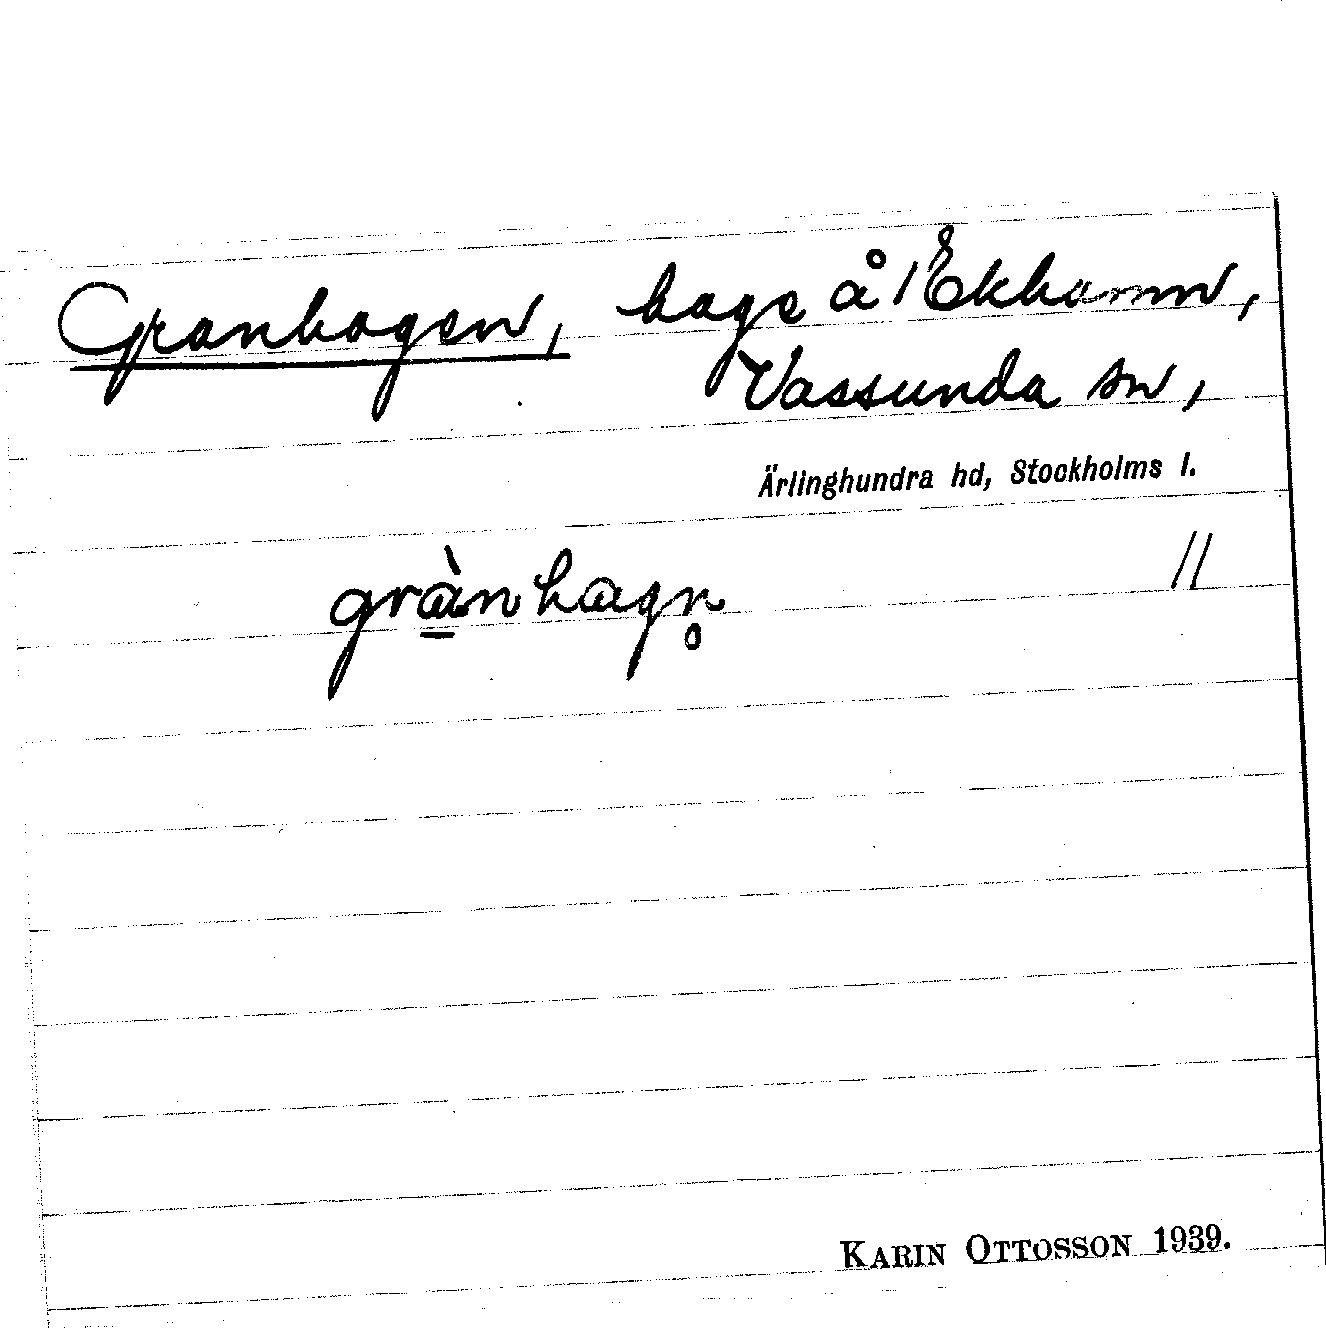 Granhagen, hage å /Ekhamn,
Vassunda sn,
Ärlinghundra hd, Stockholms l.
grà̠nhagn̥ //
KARIN OTTOSSON 1939.